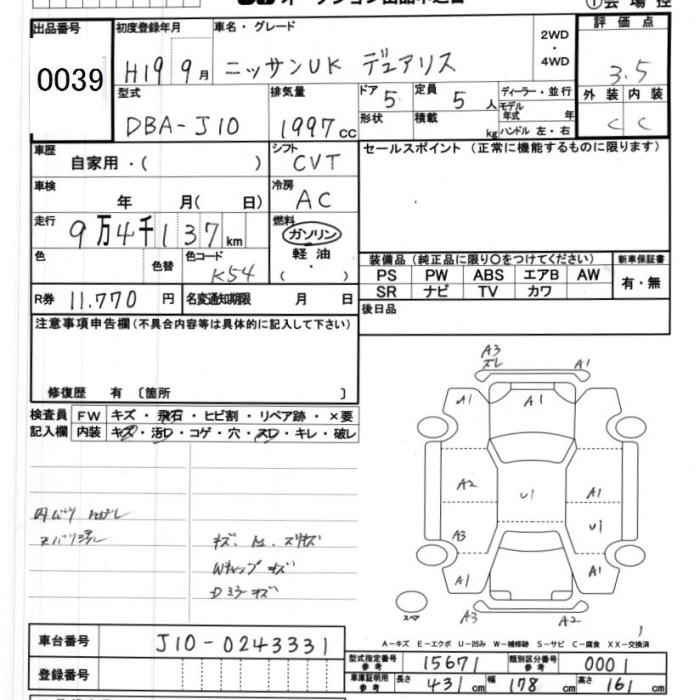 出品番号 初度登録年月 車名・グレード 評価点
0039 H19 9月 ニッサンUK デュアリス 2WD・4WD 3.5
型式 排気量 ドア 5 定員 5人 ディーラー・並行 外装 内装
DBA-J10 1997cc 形状 積載 kg モデル年式 年 ハンドル 左・右 C C
車歴 自家用・( ) シフト CVT セールスポイント(正常に機能するものに限ります)
車検 年 月( 日) 冷房 AC
走行 9万4千137km 燃料 ガソリン
色 色替 色コード K54 軽油 ( ・ )
装備品(純正品に限り○をつけてください) 新車保証書
PS PW ABS エアB AW 有・無
SR ナビ TV カワ
R券 11.770円 名変通知期限 月 日
後日品
注意事項申告欄(不具合内容等は具体的に記入して下さい)
修復歴 有 〔箇所 〕
検査員 FW キズ・飛石・ヒビ割・リペア跡・×要
記入欄 内装 キズ・汚レ・コゲ・穴・スレ・キレ・破レ
A3 ズレ A1
A1 A1
A2 U1 A1
A3 U1
A1 A1
スペア A3 A2
Wキャップ キズ
Dミラーキズ
A-キズ E-エクボ U-凹み W-補修跡 S-サビ C-腐食 XX-交換済
車台番号 J10-0243331
登録番号
型式指定番号 参考 15671 類別区分番号 参考 0001
車庫証明用 参考 長さ 431cm 幅 178cm 高さ 161cm